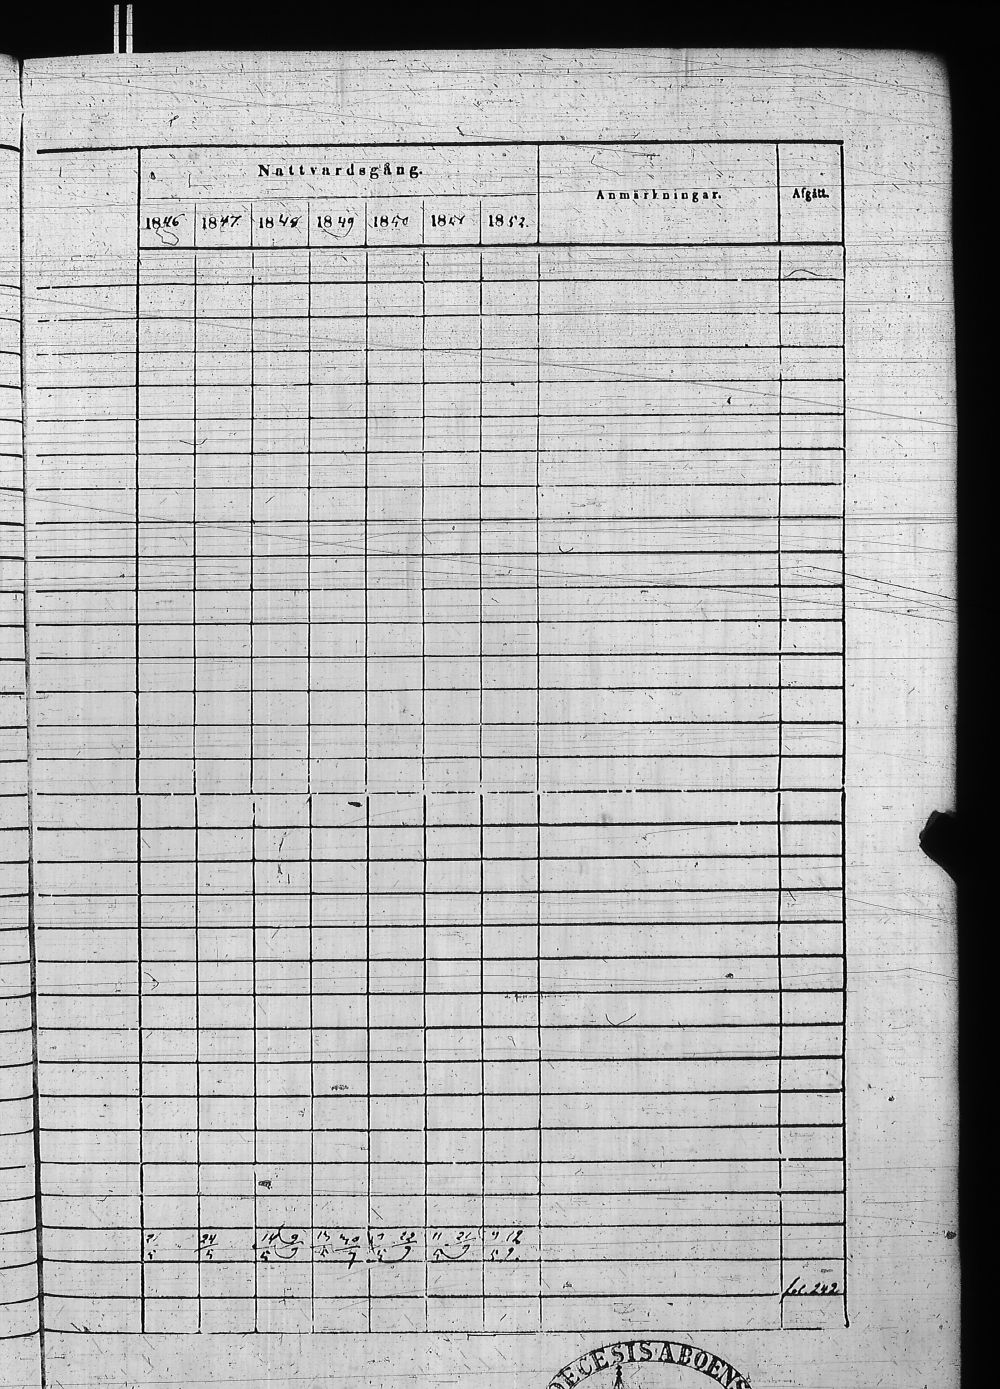 Nattvardsgång. Anmärkningar. Afgått.
1846 1847. 1848 1849 1850 1851 1852.
24 14 9 30 22 21 12
5 5 5 9 5 9 5 9 5 9 5 9.
fol. 242
DECESIS ABOENS